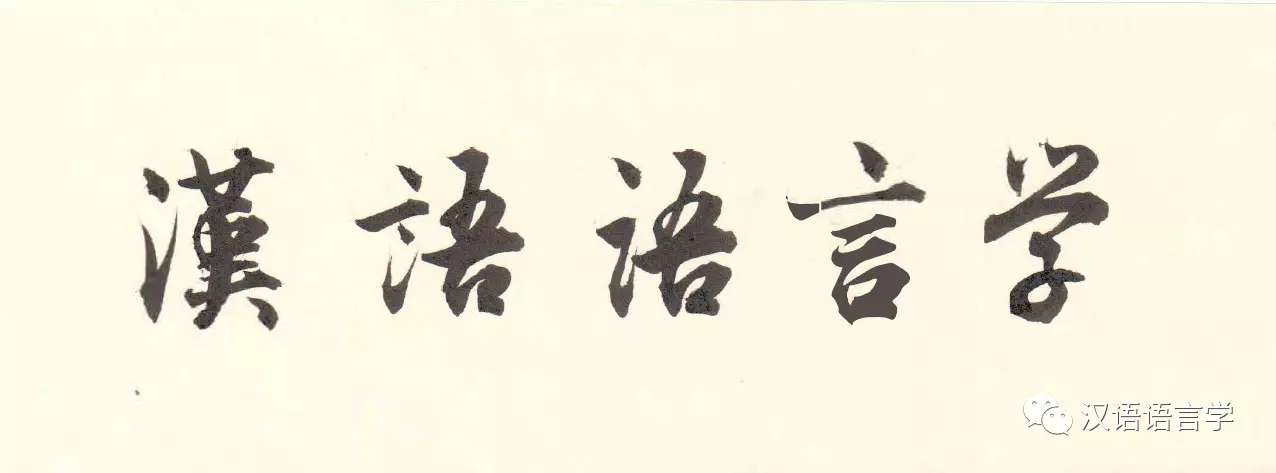 漢語语言学
汉语语言学